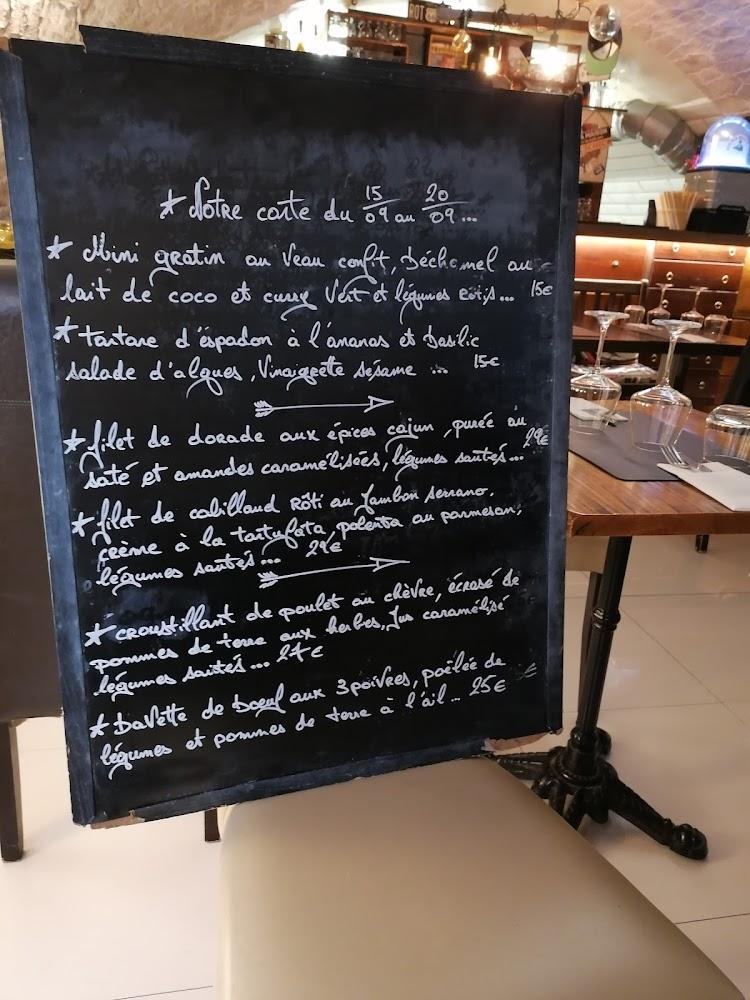 * Notre carte du 15/09 au 20/09...
* Mini gratin au Veau confit, Béchamel au
lait de coco et curry Vert et légumes Rôtis... 15€
* tartare d'espadon à l'ananas et basilic
salade d'algues, Vinaigrette sésame ... 15€
* filet de dorade aux épices cajun, purée au
saté et amandes caramélisées, légumes sautés...
* filet de cabillaud Rôti au Jambon Serrano,
crème à la tartufata, polenta au parmesan,
légumes sautés...
* croustillant de poulet au chèvre, écrasé de
pommes de terre aux herbes, Jus caramélisé
légumes sautés... 24€
* Bavette de bœuf aux 3 poivres, poêlée de
légumes et pommes de terre à l'ail... 25€